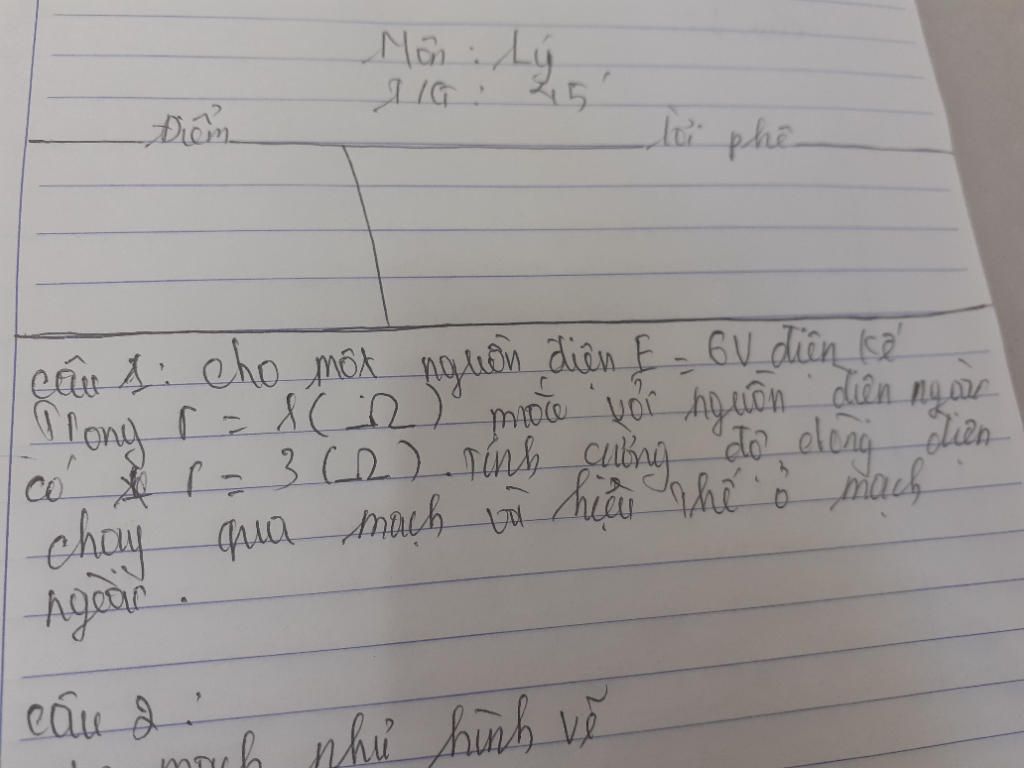 Môn : Lý
T/G : 45'
Điểm lời phê
câu 1: cho một nguồn điện E = 6V điện kế
trong r = 1(Ω) mắc với nguồn điện ngoài
có r = 3(Ω). Tính cường độ dòng điện
chạy qua mạch và hiệu thế ở mạch
ngoài.
câu 2:
mạch như hình vẽ